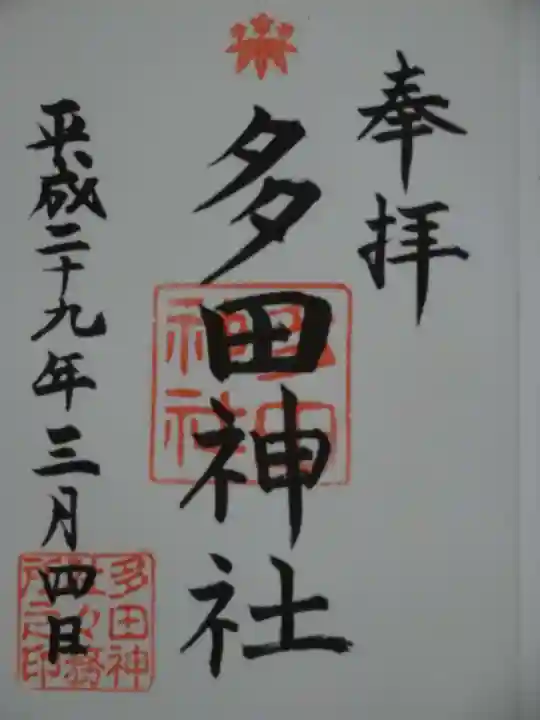 奉拝
多田神社
平成二十九年三月四日
多田神社
多田神社々務所之印